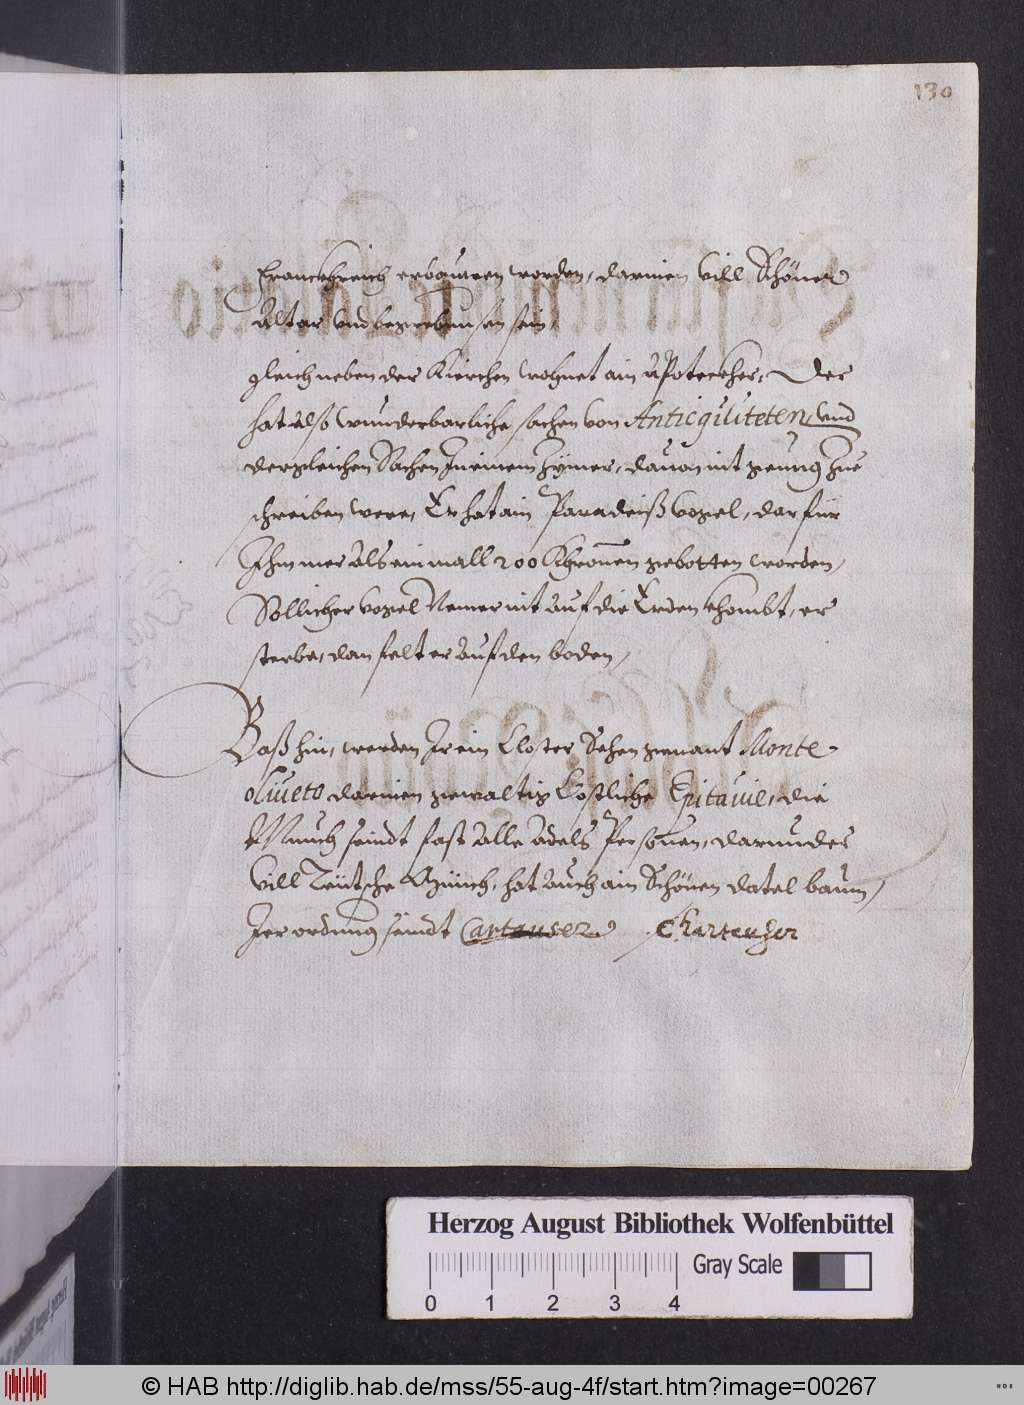 130
Franckhreich erbauwen worden, darinen vill Schöner
Altar vnd begrebnusen sein,
gleich neben der Kierchen wohnet ain Apoteckher, Der
hat also wunderbarliche sachen von Antiequiteten, vnd
dergleichen Sachen In einem Zÿmer, dauon nit genug Zue
schreiben were, Er hat ain Paradeiß vogel, darfür
Ihm mer als ein mall 200 Khronen gebotten worden,
Sollicher vogel Nemer nit auf die Erden khombt, er
sterbe, dan felt er auf den boden,
Baß hin, werden Ir ein Closter Sehen genant Monte
oliueto darinen gewaltig Costliche Epitauie, die
Münch seindt fast alle Adels Personen, darunder
vill Teütsche Münch, hat auch ain Schönen datel baum,
Ier ordnung seindt Cartauser Charteuser
Herzog August Bibliothek Wolfenbüttel
Gray Scale
0 1 2 3 4
© HAB http://diglib.hab.de/mss/55-aug-4f/start.htm?image=00267